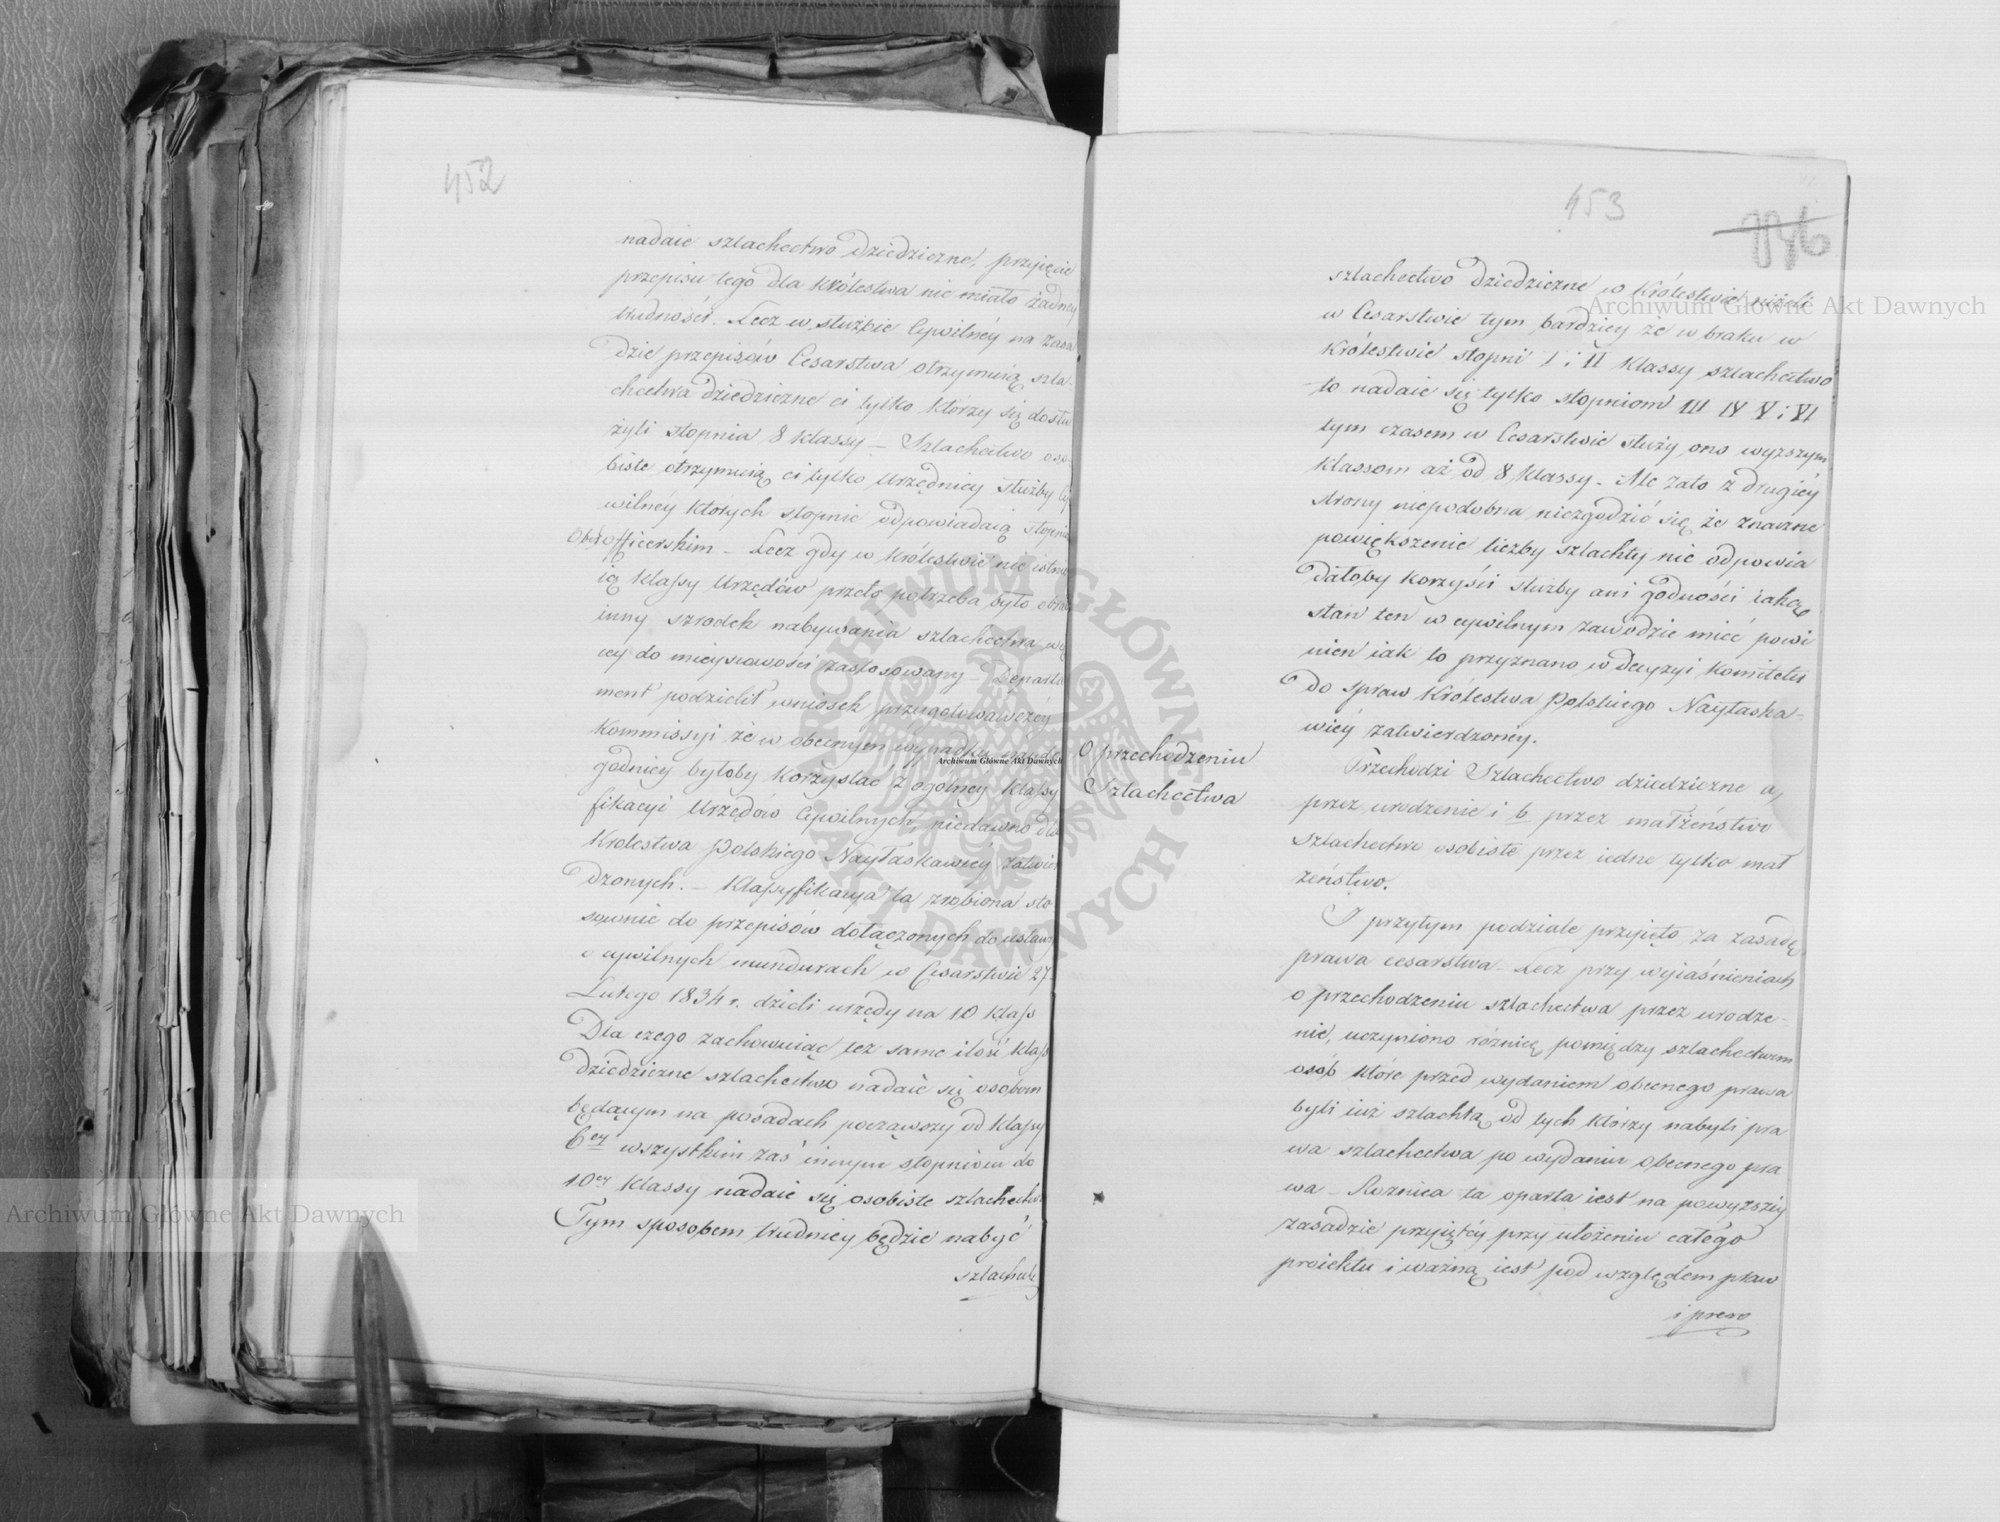 452
nadaie szlachectwo dziedziczne, przyięcie
przepisu tego dla Królestwa nie miało żadney
trudności. Lecz w służbie Cywilnéy na zasa
dzie przepisów Cesarstwa otrzymuią szla-
chectwa dziedziczne ci tylko którzy się dosłu
żyli stopnia 8 klassy – Szlachectwo oso-
biste otrzymuią ci tylko Urzędnicy służby Cy
wilnéy których stopnie odpowiadaią stopniom
Oberofficerskim – Lecz gdy w Królestwie nie istnie
ią klassy Urzędów przeto potrzeba było obrać
inny szrodek nabywania szlachectwa wię
cey do mieyscowości zastosowany – Departa
ment podzielił wniosek przygotowawczéy
Kommissyi że w obecnym wypadku naydo
godniey byłoby korzystać z ogólney klassy
fikacyi Urzędów Cywilnych, niedawno dla
Krolestwa Polskiego Nayłaskawiéy zatwier
dzonych. – Klassyfikacya ta zrobiona sto
sownie do przepisów dołączonych do ustawy
o cywilnych mundurach w Cesarstwie 27
Lutego 1834 r. dzieli urzędy na 10 klass
Dla czego zachowuiąc też same ilość klass
dziedziczne szlachectwo nadaie się osobom
będącym na posadach począwszy od klassy
6ey wszystkim zaś innym stopniom do
10ey klassy nadaie się osobiste szlachectwo
Tym sposobem trudniey będzie nabyć
szlachect
453
szlachectwo dziedziczne w Królestwie niżeli
w Cesarstwie tym bardziey że w braku w
Królestwie stopni I i II klassy szlachectwo
to nadaie się tylko stopniom III IV V i VI
tym czasem w Cesarstwie służy ono wyzszym
klassom aż od 8 klassy. Ale zato z drugiéy
strony niepodobna niezgodzić się że znaczne
powiększenie liczby szlachty nie odpowia
dałoby korzyści służby ani godności iaką
stan ten w cywilnym zawodzie mieć powi
nien iak to przyznano w decyzyi Komitetu
do spraw Królestwa Polskiego Nayłaska-
wiéy zatwierdzoney.
O przechodzeniu
Szlachectwa
Przechodzi Szlachectwo dziedziczne a,
przez urodzenie i b przez małżeństwo
szlachectwo osobiste przez iedne tylko mał
żeństwo.
I przytym podziale przyięto za zasadę
prawa cesarstwa – Lecz przy wyiaśnieniach
o przechodzeniu szlachectwa przez urodze-
nie, uczyniono różnicę pomiędzy szlachectwem
osób które przed wydaniem obecnego prawa
byli iuż szlachtą od tych którzy nabyli pra
wa szlachectwa po wydaniu obecnego pra
wa – Roznica ta oparta iest na powyzszéy
zasadzie przyiętéy przy ułożeniu całego
proiektu i ważną iest pod względem praw
i prero
Archiwum Główne Akt Dawnych
Archiwum Główne Akt Dawnych
Archiwum Główne Akt Dawnych
ARCHIWUM GŁÓWNE AKT DAWNYCH